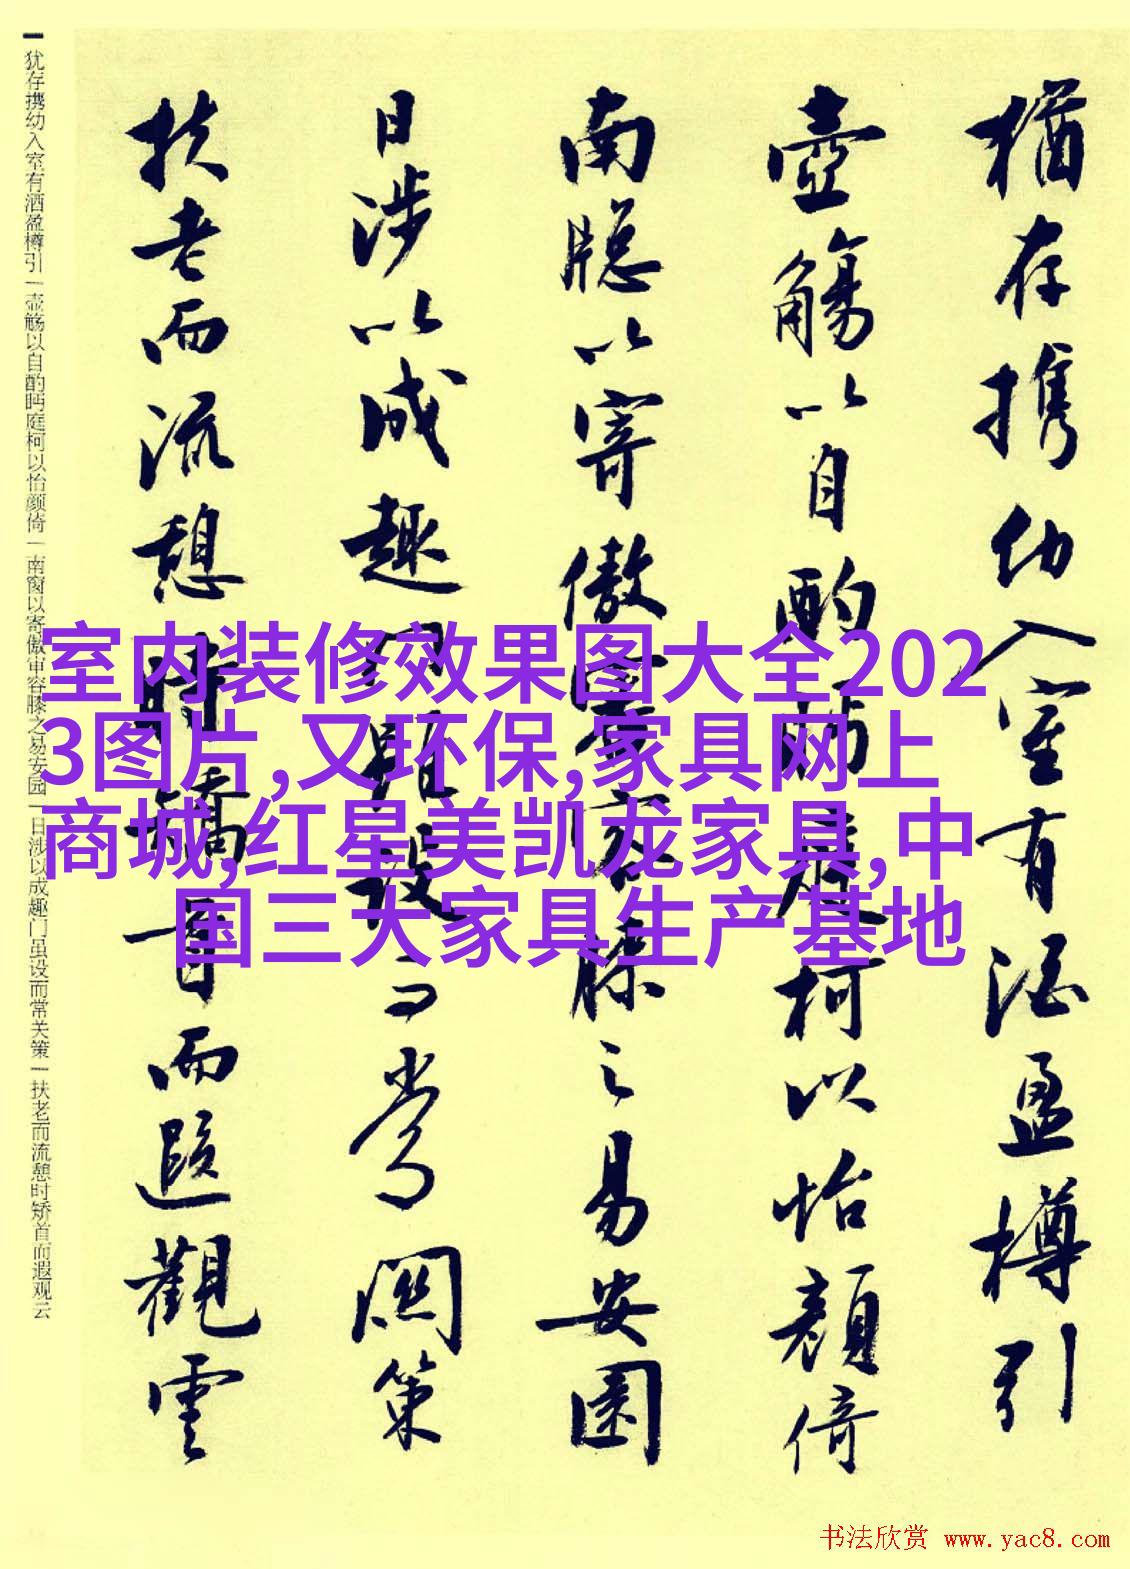 猶存携幼入室有酒盈樽引
壺觴以自酌眄庭柯以怡顔倚
南牕以寄傲審容膝之易安園
日涉以成趣門雖設而常関策
扶老而流憩時矯首而遐觀雲
犹存携幼入室有酒盈樽引|壶觞以自酌眄庭柯以怡颜倚|南窗以寄傲审容膝之易安园|日涉以成趣门虽设而常关策|扶老而流憩时矫首而遐观云
室内装修效果图大全202
3图片,又环保,家具网上
商城,红星美凯龙家具,中
国三大家具生产基地
书法欣赏 www.yac8.com